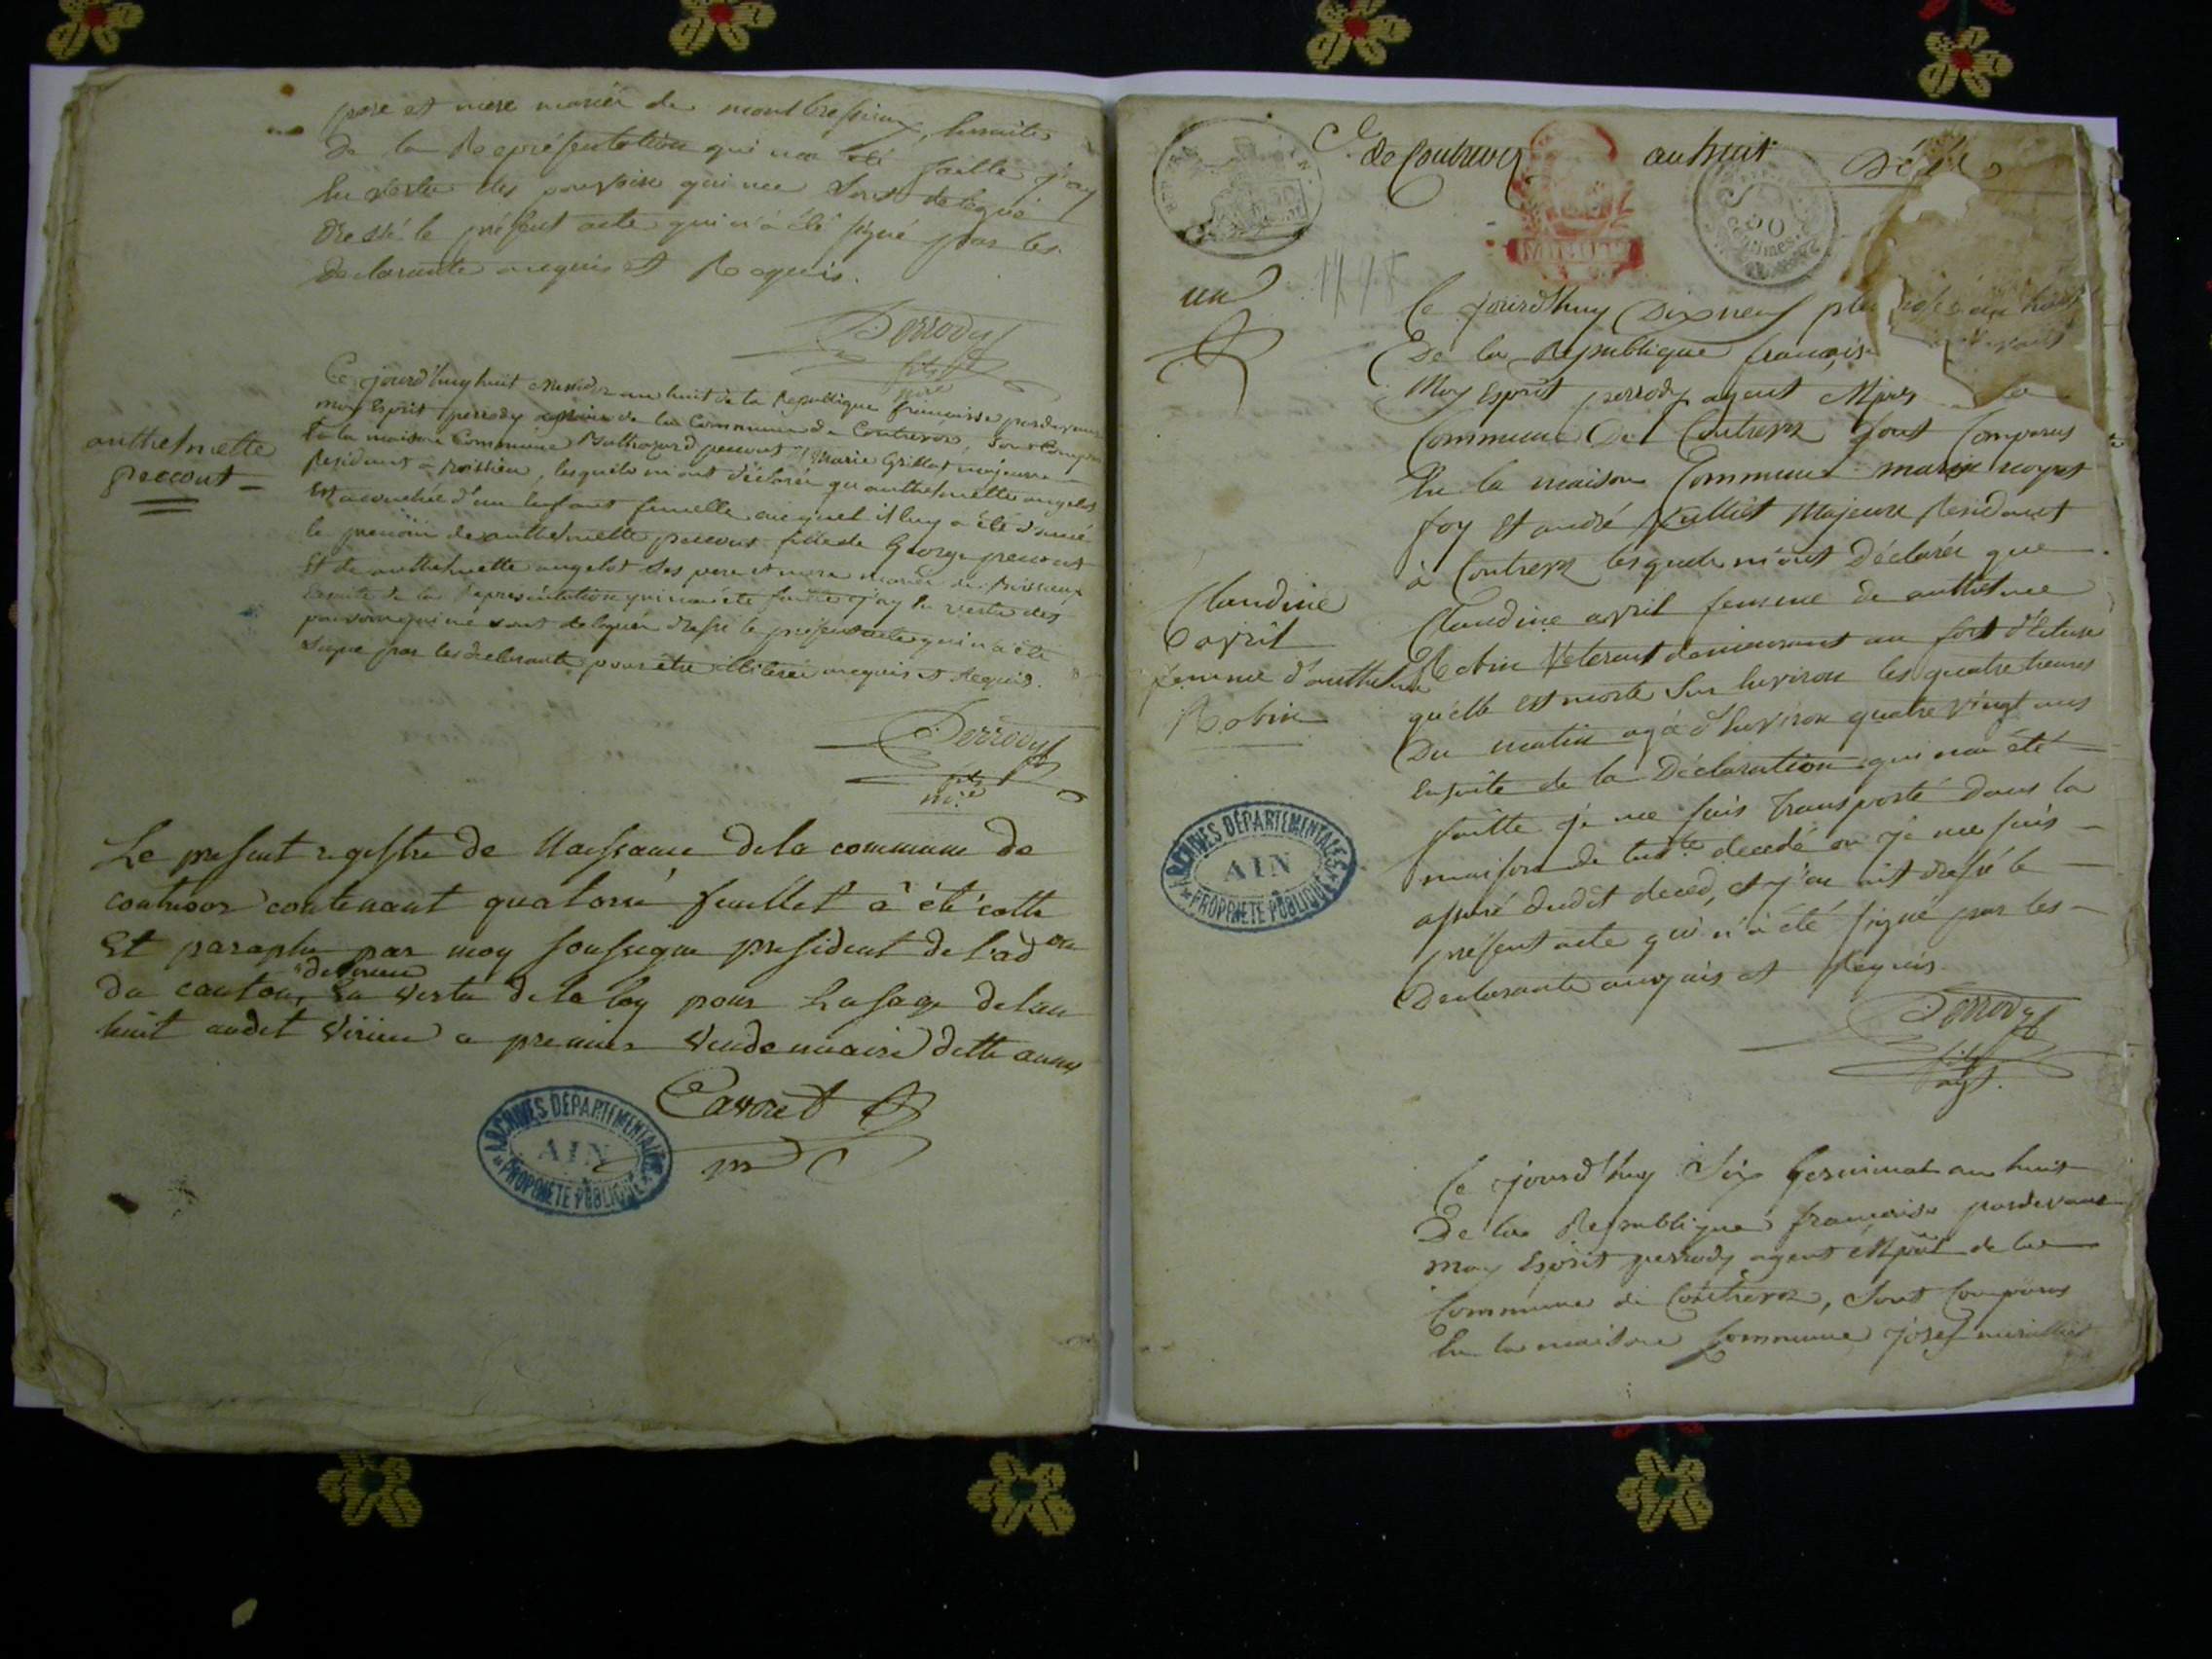 père et mere mariée de montbresieux, Ensuitte
de la Représentation qui ma été faitte j'ay
En vertu des pouvoirs qui me sont delegué
dressé le présent acte qui n'a été signé par les
declarants enquis et Requis.
Perrody
fils
anthelmette
pecout
Ce jourd'huy huit messidor an huit de la Republique francaise pardevant
moy Esprit perrody maire de la Commune de Contrevoz, Sont Comparu
En la maison Commune Balthazard pecout et Marie Grillot majeure
Resident a poissieu, lesquels m'ont déclarée qu anthelmette angelot
Est acouchée d'un Enfant femelle auquel il luy a été donné
le prenom de anthelmette pecout fille de George pecout
Et de anthelmette angelot ses pere et mere mariée de poissieux
Ensuite de la Représentation qui ma été faitte j'ay En vertu des
pouvoirs qui me sont deleguée dressé le présent acte qui n'a été
signé par les declarants pour être illiterée enquis et Requis.
Perrody
fils
m.re
Le present registre de Naissance de la commune de
contrevoz contenant quatorze feuillet a été cotté
Et paraphé par moy soussigné president de l'ad.on
du canton de virieu En vertu de la loy pour Lusage de lan
huit audit Virieu ce premier Vendemiaire ditte année
Cavoret
ARCHIVES DÉPARTEMENTALES
AIN
PROPRIÉTÉ PUBLIQUE
C.e de Contrevoz an huit Décès
50
centimes
un
Ce jourd'huy Dixneuf
De la Republique francaise
Moy Esprit perrody agent
Commune De Contrevoz Sont Comparus
En la maison Commune
foy Et andré Jullliet Majeure Résidant
à Contrevoz lesquels m'ont Déclarée que
Claudine avril femme de anthelme
Robin Veterant demeurant au fort d'Ecluse
qu'elle est morte Sur Environ les quatre heures
Du matin agée d'Environ quatre vingt ans
Ensuite de la Déclaration qui ma été
faitte je me suis transporté dans la
maison de decedé ou je me suis
assuré dudit deced, et j'en ait dressé le
présent acte qui n'a été signé par les
Declarants enquis et Requis.
Claudine
avril
femme d'anthelme
Robin
Perrody
fils
agt.
ARCHIVES DÉPARTEMENTALES
AIN
PROPRIÉTÉ PUBLIQUE
Ce jourd'huy Six Germinal an huit
De la Republique francaise pardevant
moy Esprit perrody agent de la
Commune de Contrevoz, Sont Comparus
En la maison Commune josef